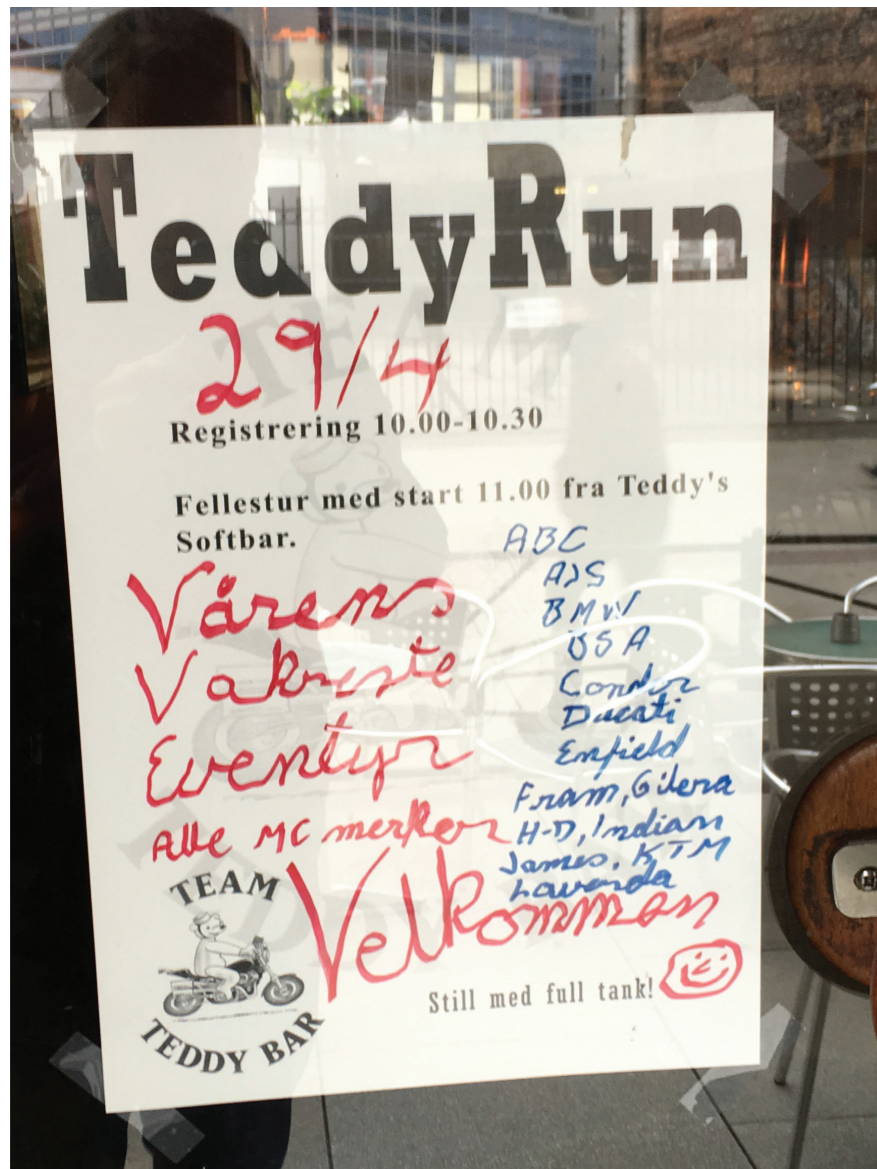 TeddyRun
29/4
Registrering 10.00-10.30
Fellestur med start 11.00 fra Teddy's
Softbar.
Vårens
Vakreste
Eventyr
Alle MC merker
Velkommen
ABC
AJS
BMW
BSA
Condor
Ducati
Enfield
Fram, Gilera
H-D, Indian
James, KTM
Laverda
Still med full tank!
TEAM
TEDDY BAR
TEAM
TEDDY